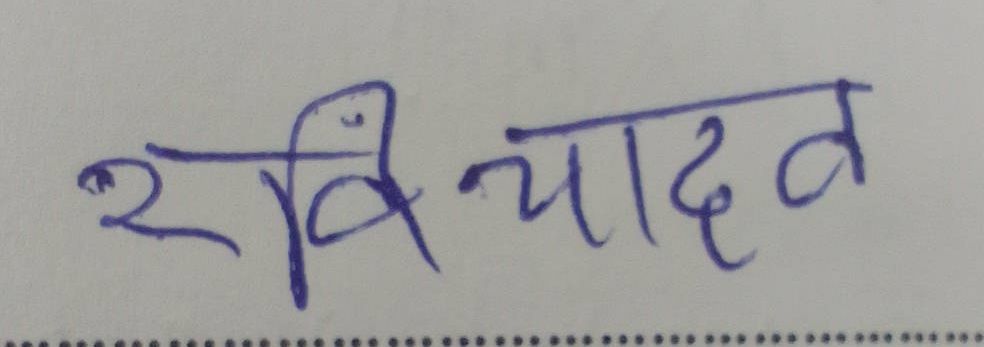 रविं यादव